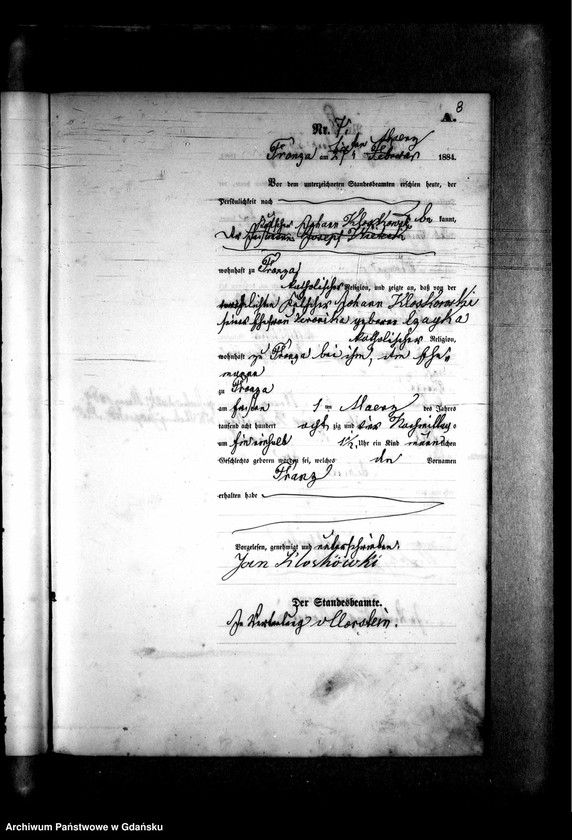 8
A.
Nr. 7.
Maerz
Fronza am Februar 1884.
Vor dem unterzeichneten Standesbeamten erschien heute, der
Persönlichkeit nach be kannt,
Kutscher Johann Kloskowski
der Joseph
wohnhaft zu Fronza
katholischer Religion, und zeigte an, daß von der
Kutscher Johann Kloskowski
seiner Ehefrau Veronika geborene Czayka
katholischer Religion,
wohnhaft zu Fronza bei ihm, dem Ehe-
manne
zu Fronza
am ersten 1ten Maerz des Jahres
tausend acht hundert acht zig und vier Nachmittags
um ein einhalb 1½ Uhr ein Kind männlichen
Geschlechts geboren worden sei, welches den Vornamen
Franz
erhalten habe
Vorgelesen, genehmigt und unterschrieben.
Jan Kloskówski
Der Standesbeamte.
In Vertretung
Archiwum Państwowe w Gdańsku